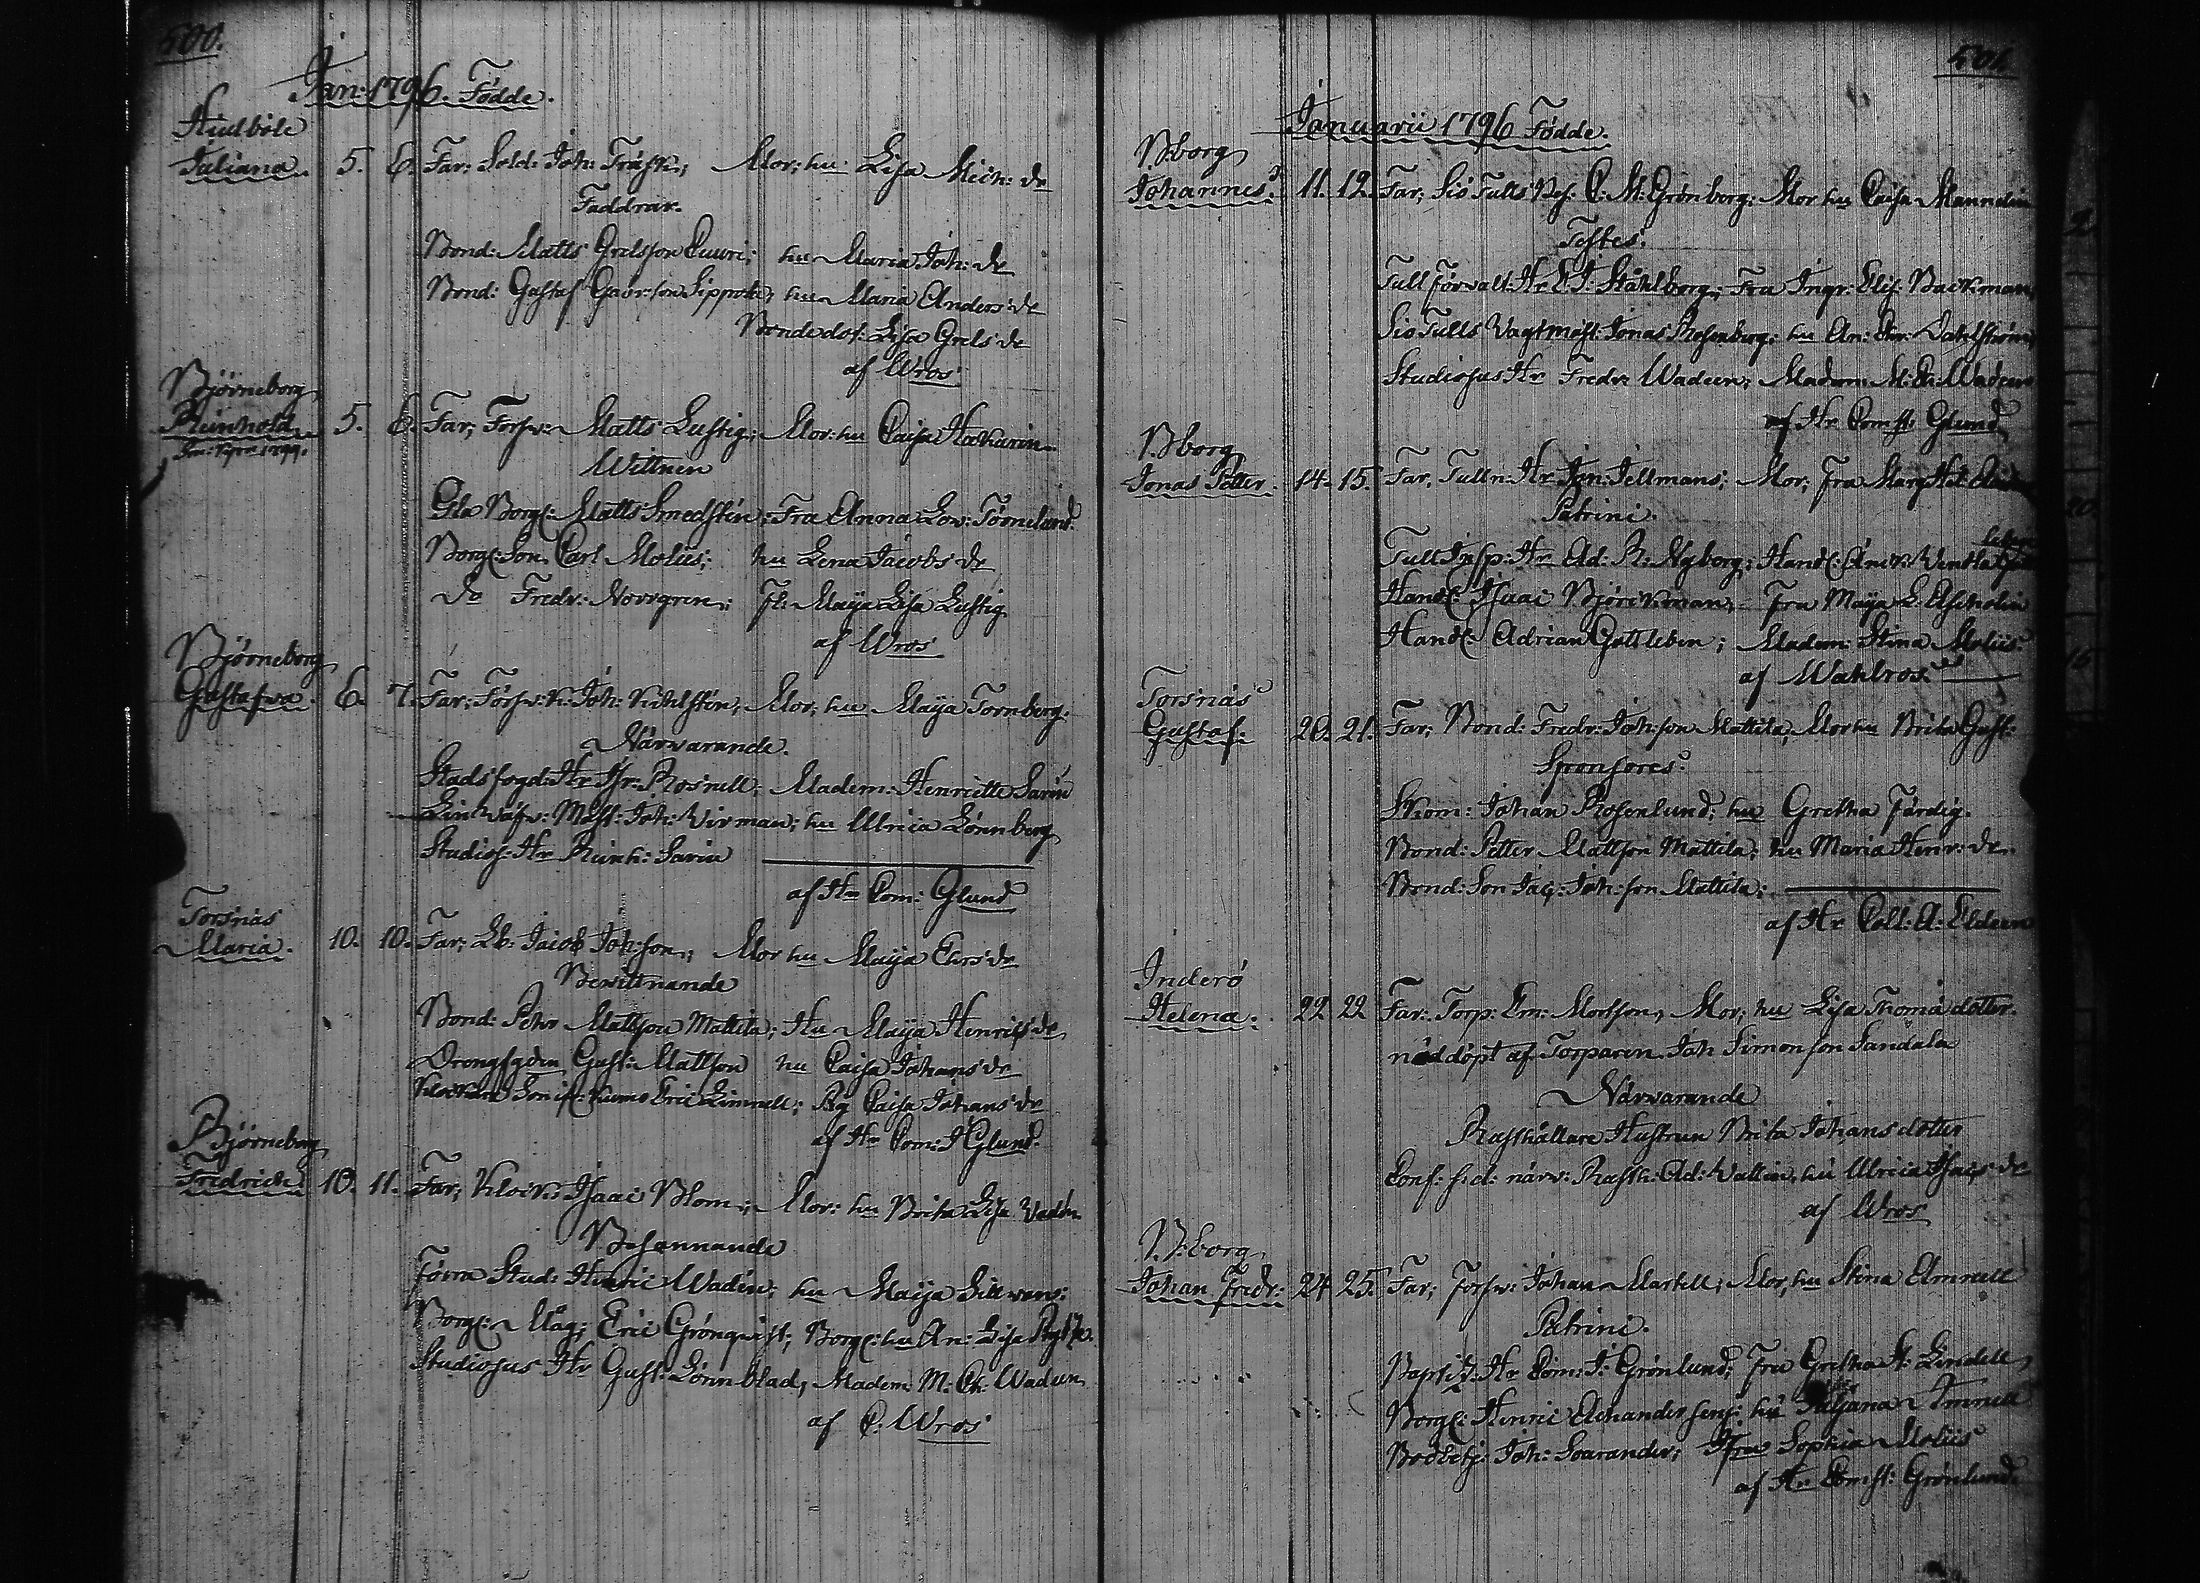 500.
Jan: 1796. Födde.
Hiulböle
Juliana. 5. 6. Far: Sold: Joh: Träsk; Mor: hu Lisa Mich: dr
Faddrar.
Bond: Matts Grelsson Cuuri; hu Maria Joh: dr
Bond: Gustaf Gabr:son Sippola; hu Maria Anders dr
Bondedot: Lisa Grels dr
af Wros
Björneborg
Reinhold. 5. 6. Far; Förs:v: Matts Lustig; Mor: hu Caisa
Wittnen
Borg: Matts Smedsten; Fra Anna Lov: Törnelund.
Borg: Son Carl Moliis; hu Lena Jacobs dr
Do Fredr: Norrgren; Maija Lisa Lustig
af Wros
Björneborg
Gustafva. 6. 7. Far: Förs:v:k: Joh: Kihlsten; Mor; hu Maija Tornberg.
Närvarande.
Stadsfogd: Hr Isr: Rosnell; Madem: Henriette Sarin
Linwäfv: Mäst: Joh: Wirman; hu Ulrica Lönnberg
Studios: Hr Reinh: Sarin
af Hr Com: Glund
Torsnäs
Maria. 10. 10. Far; Lb: Jacob Joh:son; Mor hu Maija Ers dr
Bewittnande
Bond: Petter Mattson Mattila; Hu Maija Henrics dr
Drengsgden Gust: Mattson hu Caisa Johans dr
Klockare Son ifr: Kumo Eric Limnell; Pig Caisa Johans dr
af Hr Com: Glund.
Björneborg
Fredrich. 10. 11. Far; Klock: Isaac Blom; Mor: hu Brita Lisa Wadén
Besannande
Förra Stud: Henric Wadén; hu Maija
Borg: Måg; Eric Grönqvist; Borg: hu An: Lisa
Studiosus Hr Gust: Lönnblad; Madem M: Ch: Wadeen
af C: Wros
501.
Januarii 1796 Födde.
B:borg
Johannes. 11. 12. Far; Siö Tulls Bes: C: M: Grönborg; Mor hu Caisa Mannelin
Testes.
Tull Förvalt: Hr E: J: Ståhlberg; Fra Ingr: Elis: Backman
Siö Tulls Vagtmäst: Jonas Rosenberg; hu An: Chr: Dahlström
Studiosus Hr Fredr: Wadeen; Madem: M: Ch: Wadeen
af Hr Comst: Glund
B:borg
Jonas Petter. 14. 15. Far, Tulln: Hr Jon: Jellmans; Mor; Fra Marg Hel:
Patrini.
Tull Insp: Hr Ad: R: Nyborg; Handl: Andr:
Handl: Isaac Björkman; Fra Maija L: Ascholin
Handl: Adrian Gottleben; Madem: Stina Moliis
af Wahlros
Torsnäs
Gustaf: 20. 21. Far; Bond: Fredr: Joh:son Mattila; Mor hu Brita Gust:
Sponsores.
Skom: Johan Rosenlund; hu Gretha Färdig.
Bond: Petter Mattson Mattila; hu Maria Henr: dr
Bond: Son Jac: Joh:son Mattila;
af Hr Coll: A: Eldeen
Inderö
Helena. 22 22 Far: Torp: Em: Matsson, Mor: hu Lisa Thomä dotter.
nöddöpt af Torparen Joh Simonson Sandala
Närvarande
Rusthållare Hustrun Brita Johans dotter
Conf: s: d: närv: Rusth: Ad: Wallin, hu Ulrica Isacs dr
af Wros
B:borg
Johan Fredr: 24 25. Far; Förs:v: Johan Martell; Mor, hu Stina Amnell
Patrini.
Baptist: Hr Com: J: Grönlund; Fra Gretha St: Lindell
Borg: Henric Achander sen; hu Juliana
Bodbetj: Joh: Sourander; Jfru Sophia Moliis
af Hr Comst: Grönlund